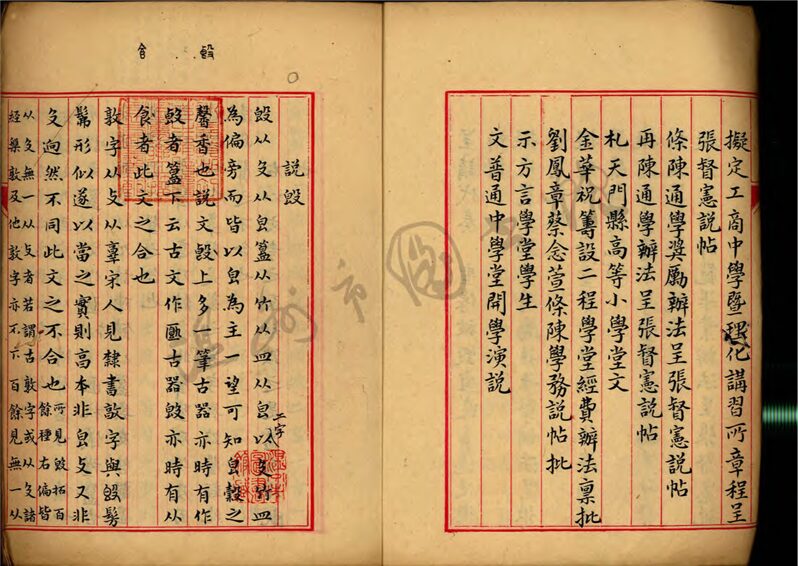 擬定工商中學暨理化講習所章程呈
張督憲說帖
條陳通學奬厲辦法呈張督憲說帖
再陳通學辦法呈張督憲說帖
札天門縣高等小學堂文
金華祝籌設二程學堂經費辦法稟批
劉鳳章蔡念萱條陳學務說帖批
示方言學堂學生
文普通中學堂開學演說
說毁
毁从殳从皀簋从竹从皿从皀以殳竹皿
二字
為偏旁而皆以皀為主一望可知皀穀之
馨香也說文毁上多一筆古器亦時有作
毁者簋下云古文作匭古器毁亦時有从
食者此文之合也
敦字从攴从𦎫宋人見隸書敦字與毁髣
髴形似遂以當之實則高本非皀攴又非
殳逈然不同此文之不合也
所見毁拓百
餘種右偏皆
从殳無一从攴者若謂古敦字或从殳諸
經典敦及他敦字亦不下百餘見無一从